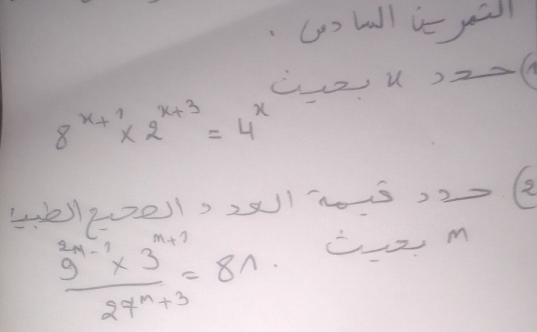 التمرين السادس .
1) حدد x بحيث
8^{x+1} × 2^{x+3} = 4^x
2) حدد قيمة العدد الصحيح الطبيعي
m بحيث
\frac{9^{2m-1} × 3^{m+1}}{27^{m+3}} = 81.